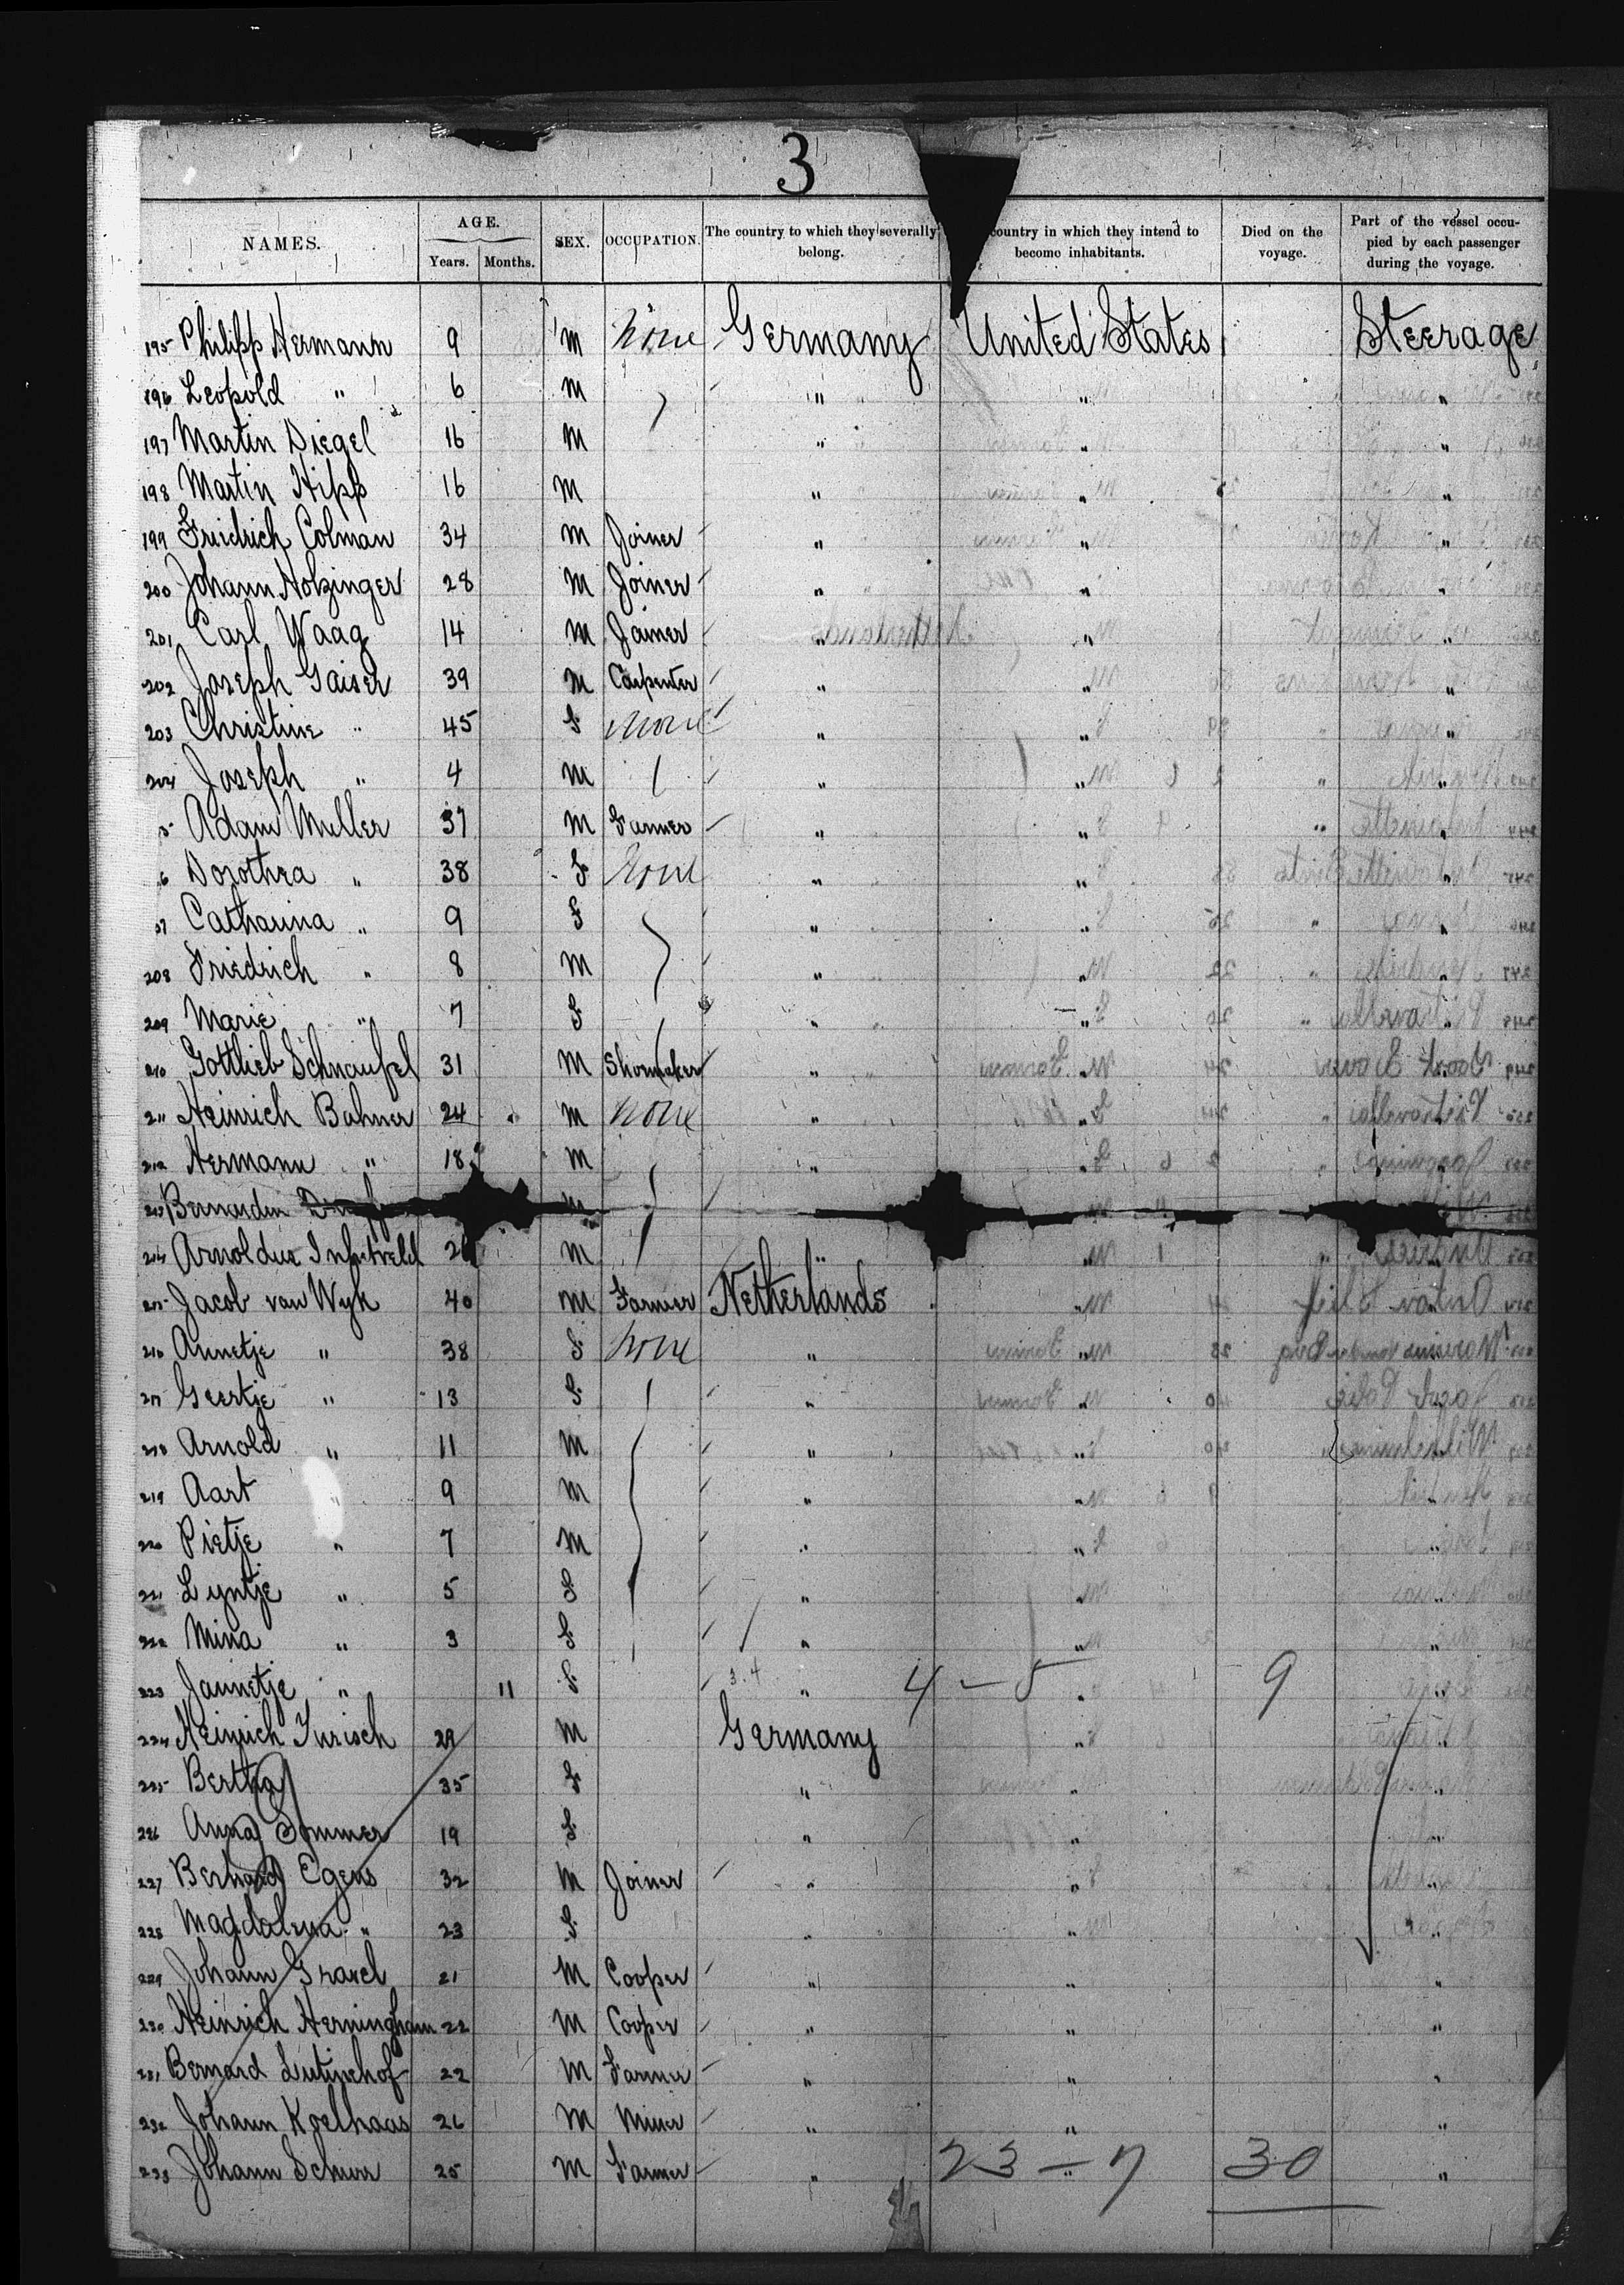 3
NAMES. AGE. Years. Months. SEX. OCCUPATION. The country to which they severally belong. country in which they intend to become inhabitants. Died on the voyage. Part of the vessel occupied by each passenger during the voyage.
195 Philipp Hermann 9 M None Germany United States Steerage
196 Leopold " 6 M " " "
197 Martin Diegel 16 M " " "
198 Martin Hipp 16 M " " "
199 Friedrich Colman 34 M Joiner " " "
200 Johann Holzinger 28 M Joiner " " "
201 Carl Waag 14 M Joiner " " "
202 Joseph Gaiser 39 M Carpenter " " "
203 Christine " 45 F None " " "
204 Joseph " 4 M " " "
5 Adam Muller 37 M Farmer " " "
6 Dorothea " 38 F None " " "
07 Catharina " 9 F " " "
208 Friedrich " 8 M " " "
209 Marie " 7 F " " "
210 Gottlieb Schnaufel 31 M Shoemaker " " "
211 Heinrich Bahner 24 M None " " "
212 Hermann " 18 M " " "
213 Bernardin M
214 Arnoldus M " "
215 Jacob van Wyk 40 M Farmer Netherlands " "
216 Annetje " 38 F None " " "
217 Geertje " 13 F " " "
218 Arnold " 11 M " " "
219 Aart " 9 M " " "
220 Pietje " 7 M " " "
221 Lyntje " 5 F " " "
222 Mina " 3 F " " "
223 Jannetje " 11 F 3.4 " 4 - 5 " 9 "
224 Heinrich Jurisch 29 M Germany " "
225 Bertha 35 F " " "
226 Anna Sommer 19 F " " "
227 Bernard Egens 32 M Joiner " " "
228 Magdalena " 23 F " " "
229 Johann Grasel 21 M Cooper " " "
230 Heinrich Herningham 22 M Cooper " " "
231 Bernard Lutjnehof 22 M Farmer " " "
232 Johann Koelhaas 26 M Miner " " "
233 Johann Schurr 25 M Farmer " 23 - 7 " 30 "